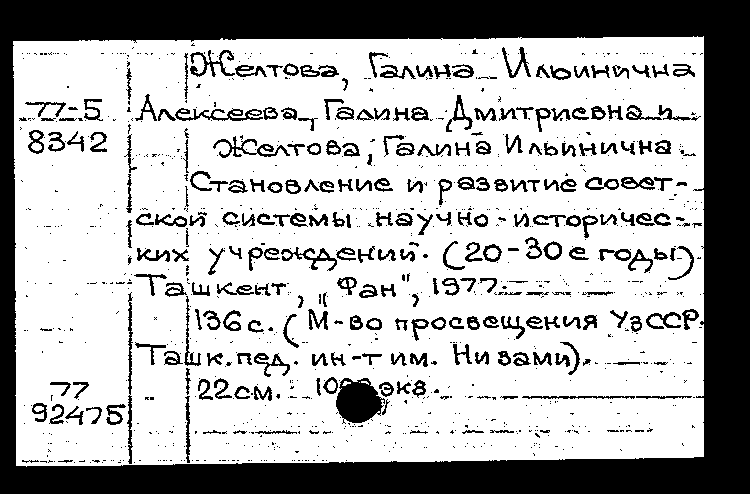 Желтова, Галина Ильинична
77-5 Алексеева, Галина Дмитриевна и
8342 Желтова, Галина Ильинична.
Становление и развитие совет-
ской системы научно-историчес-
ких учреждений. (20-30е годы)
Ташкент, „Фан", 1977.
136с. (М-во просвещения УзССР.
Ташк. пед. ин-т им. Низами).
77 22см. экз.
92475